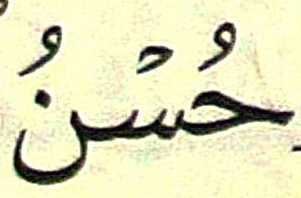 حُسْنُ